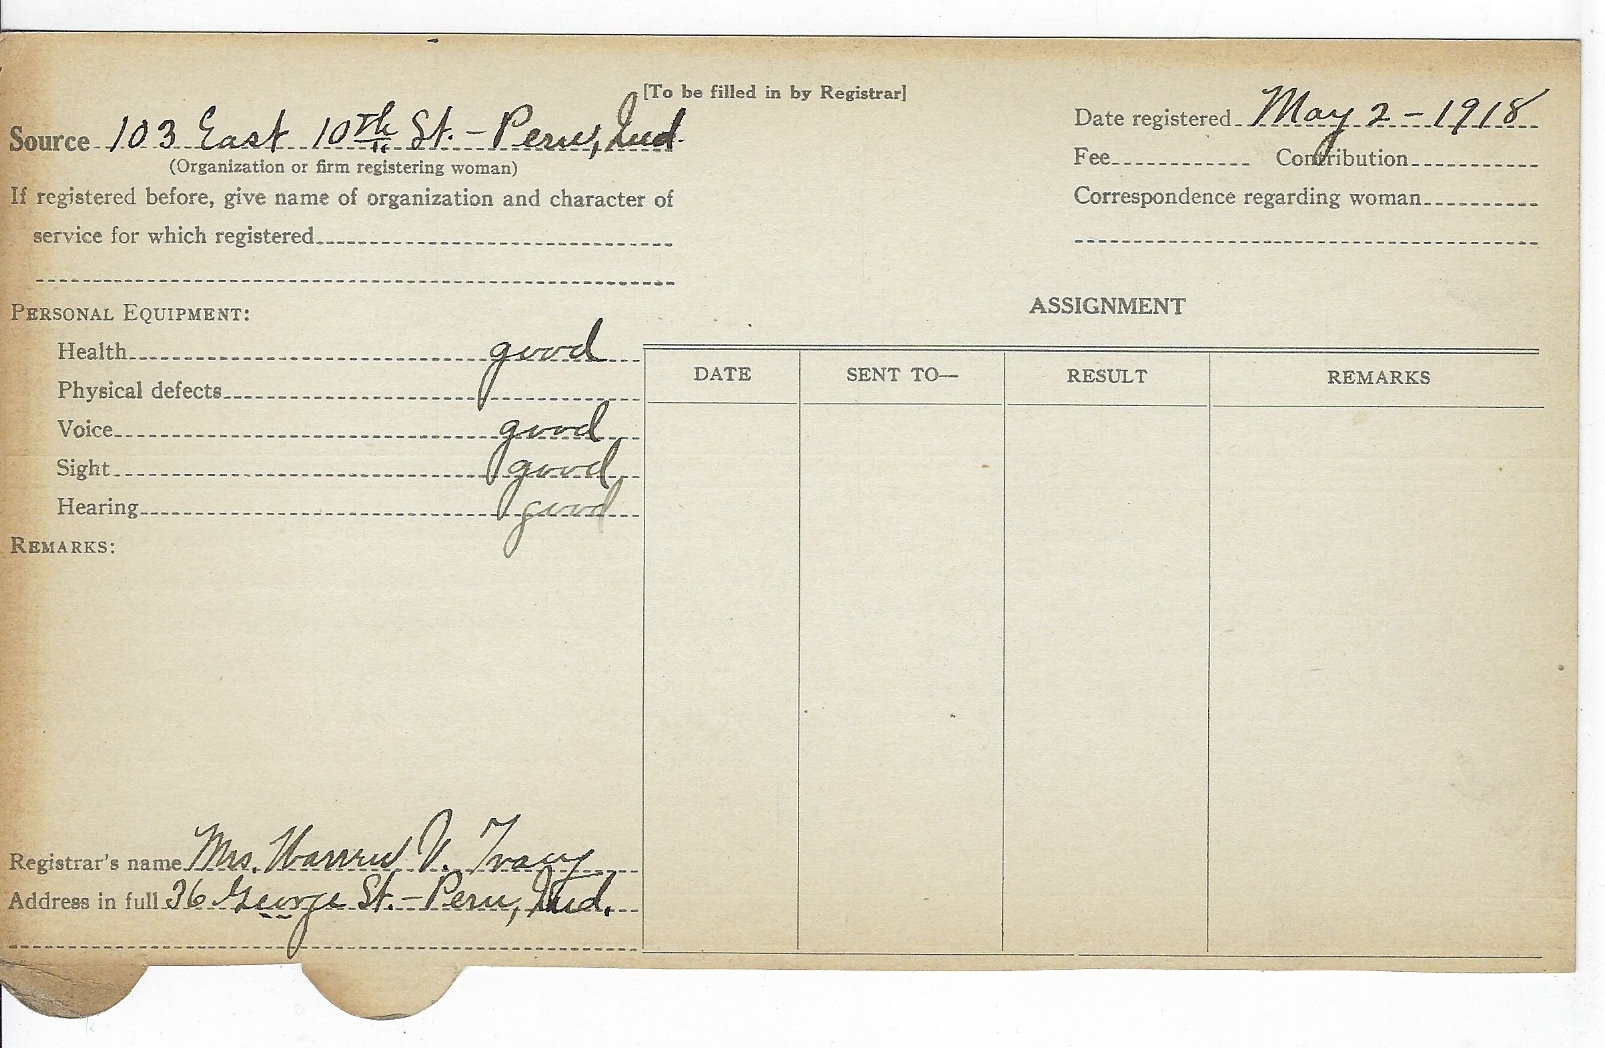 [To be filled in by Registrar]
Source 103 East 10th St. - Peru, Ind.
(Organization or firm registering woman)
If registered before, give name of organization and character of
service for which registered
Date registered May 2 - 1918
Fee Contribution
Correspondence regarding woman
PERSONAL EQUIPMENT:
Health good
Physical defects
Voice good
Sight good
Hearing good
REMARKS:
ASSIGNMENT
DATE SENT TO— RESULT REMARKS
Registrar's name Mrs. Warren V. Tracy
Address in full 36 George St. - Peru, Ind.